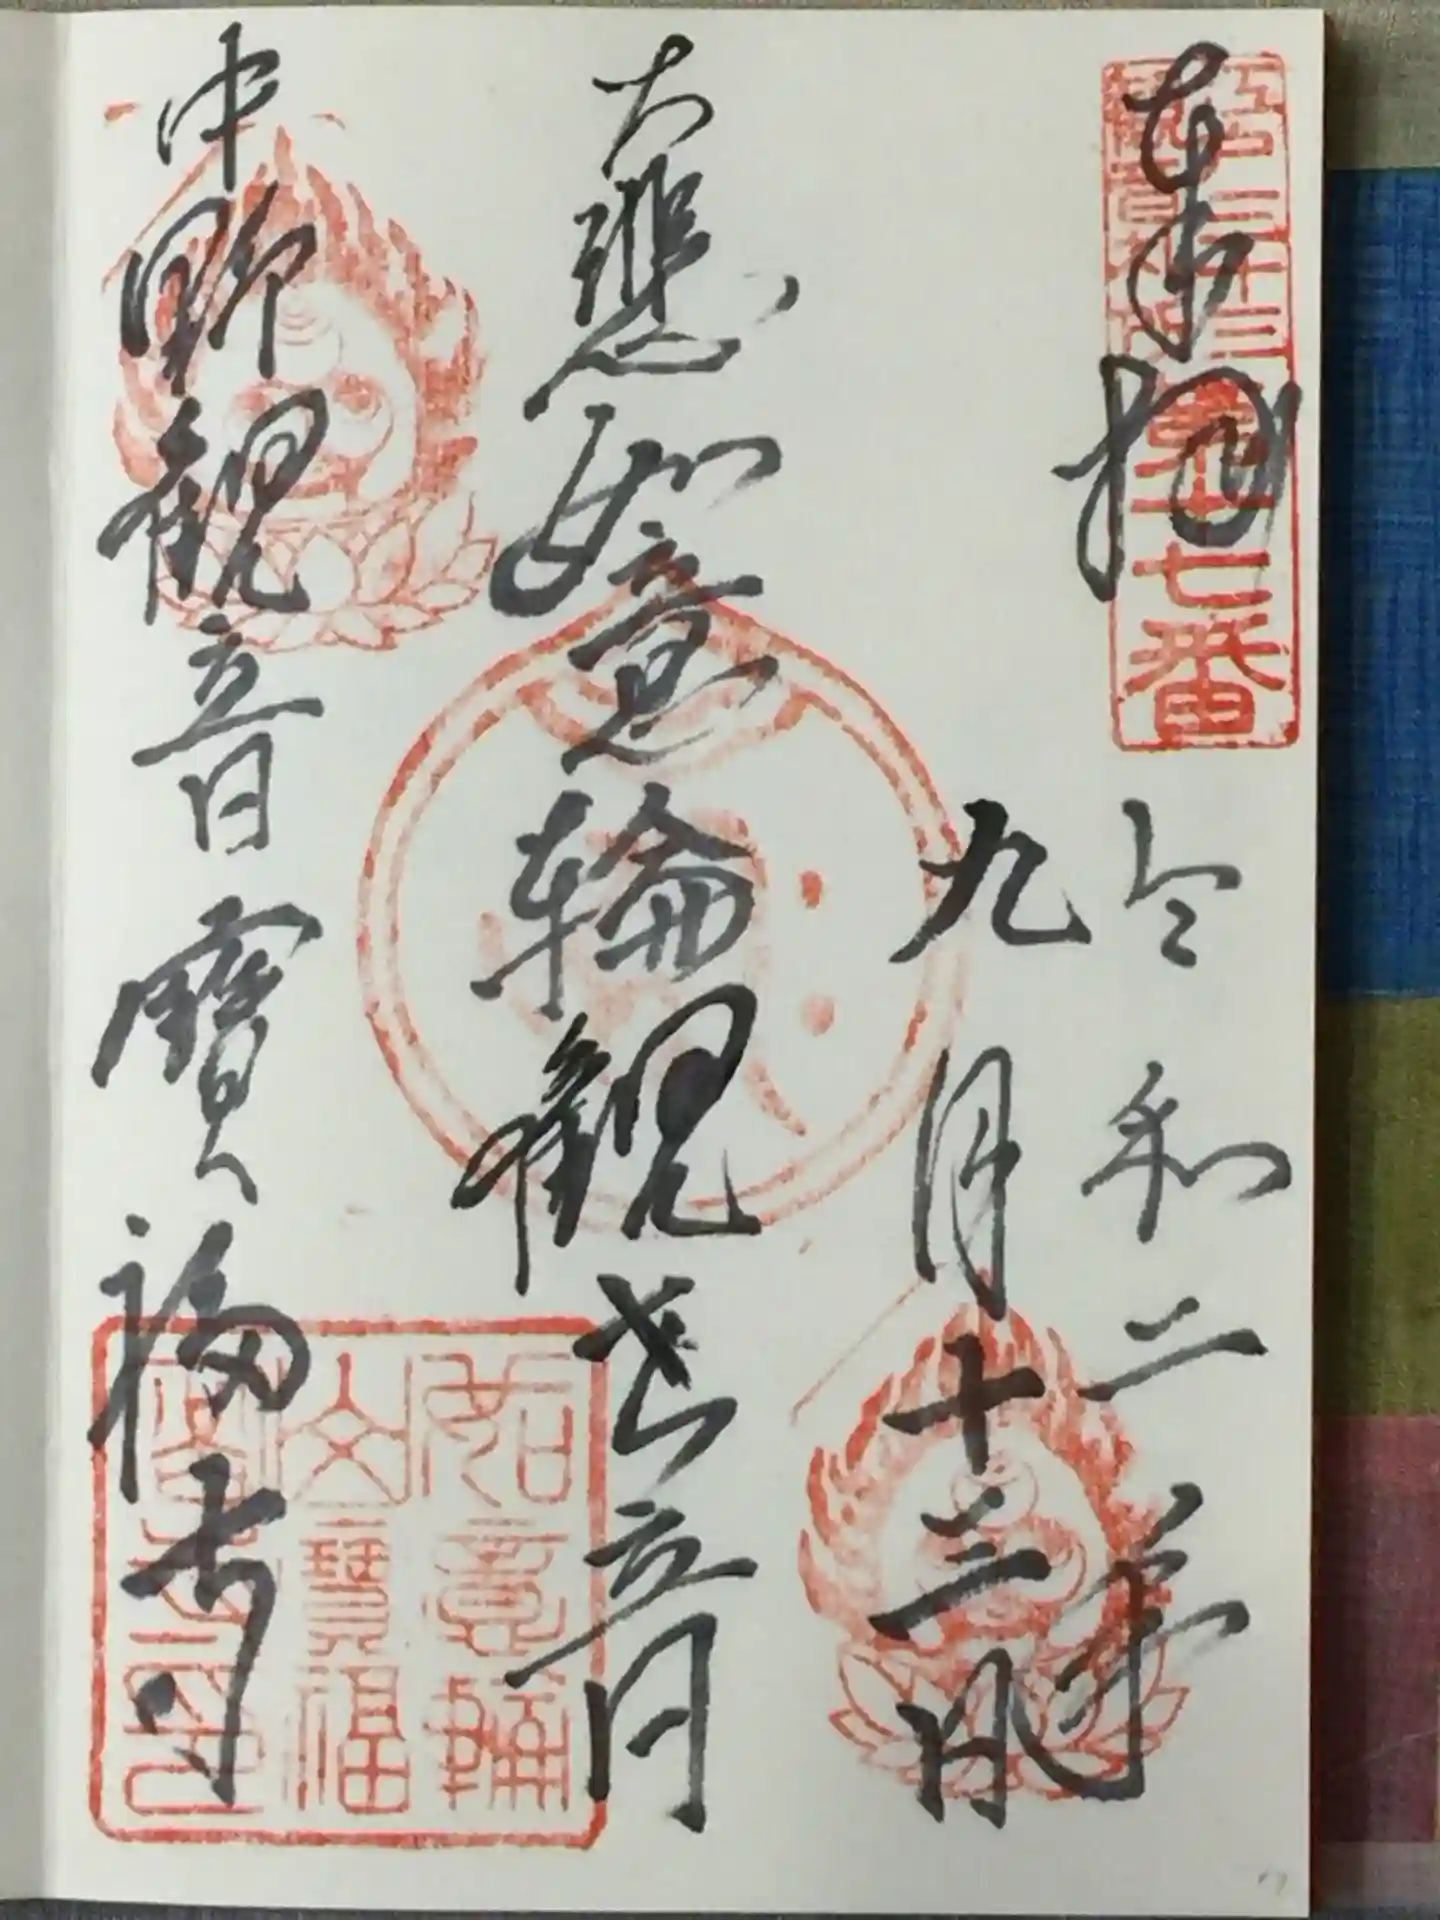 奉拝
令和二年
九月十三日
大悲如意輪観世音
中野観音寶福寺
江戸三十三
観音札所
第十七番
如意輪
山寶福